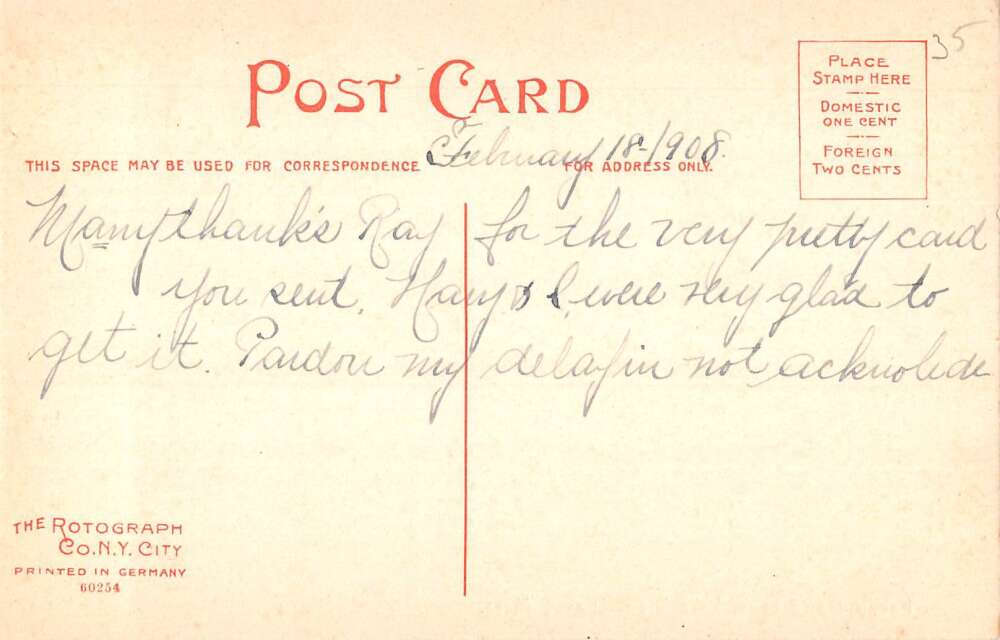 35
POST CARD
PLACE
STAMP HERE
DOMESTIC
ONE CENT
FOREIGN
TWO CENTS
February 18-1908.
THIS SPACE MAY BE USED FOR CORRESPONDENCE
FOR ADDRESS ONLY.
Many thank's Ray for the very pretty card
you sent, Harry & I, were very glad to
get it. Pardon my delay in not acknolede
THE ROTOGRAPH
CO. N.Y. CITY
PRINTED IN GERMANY
60254